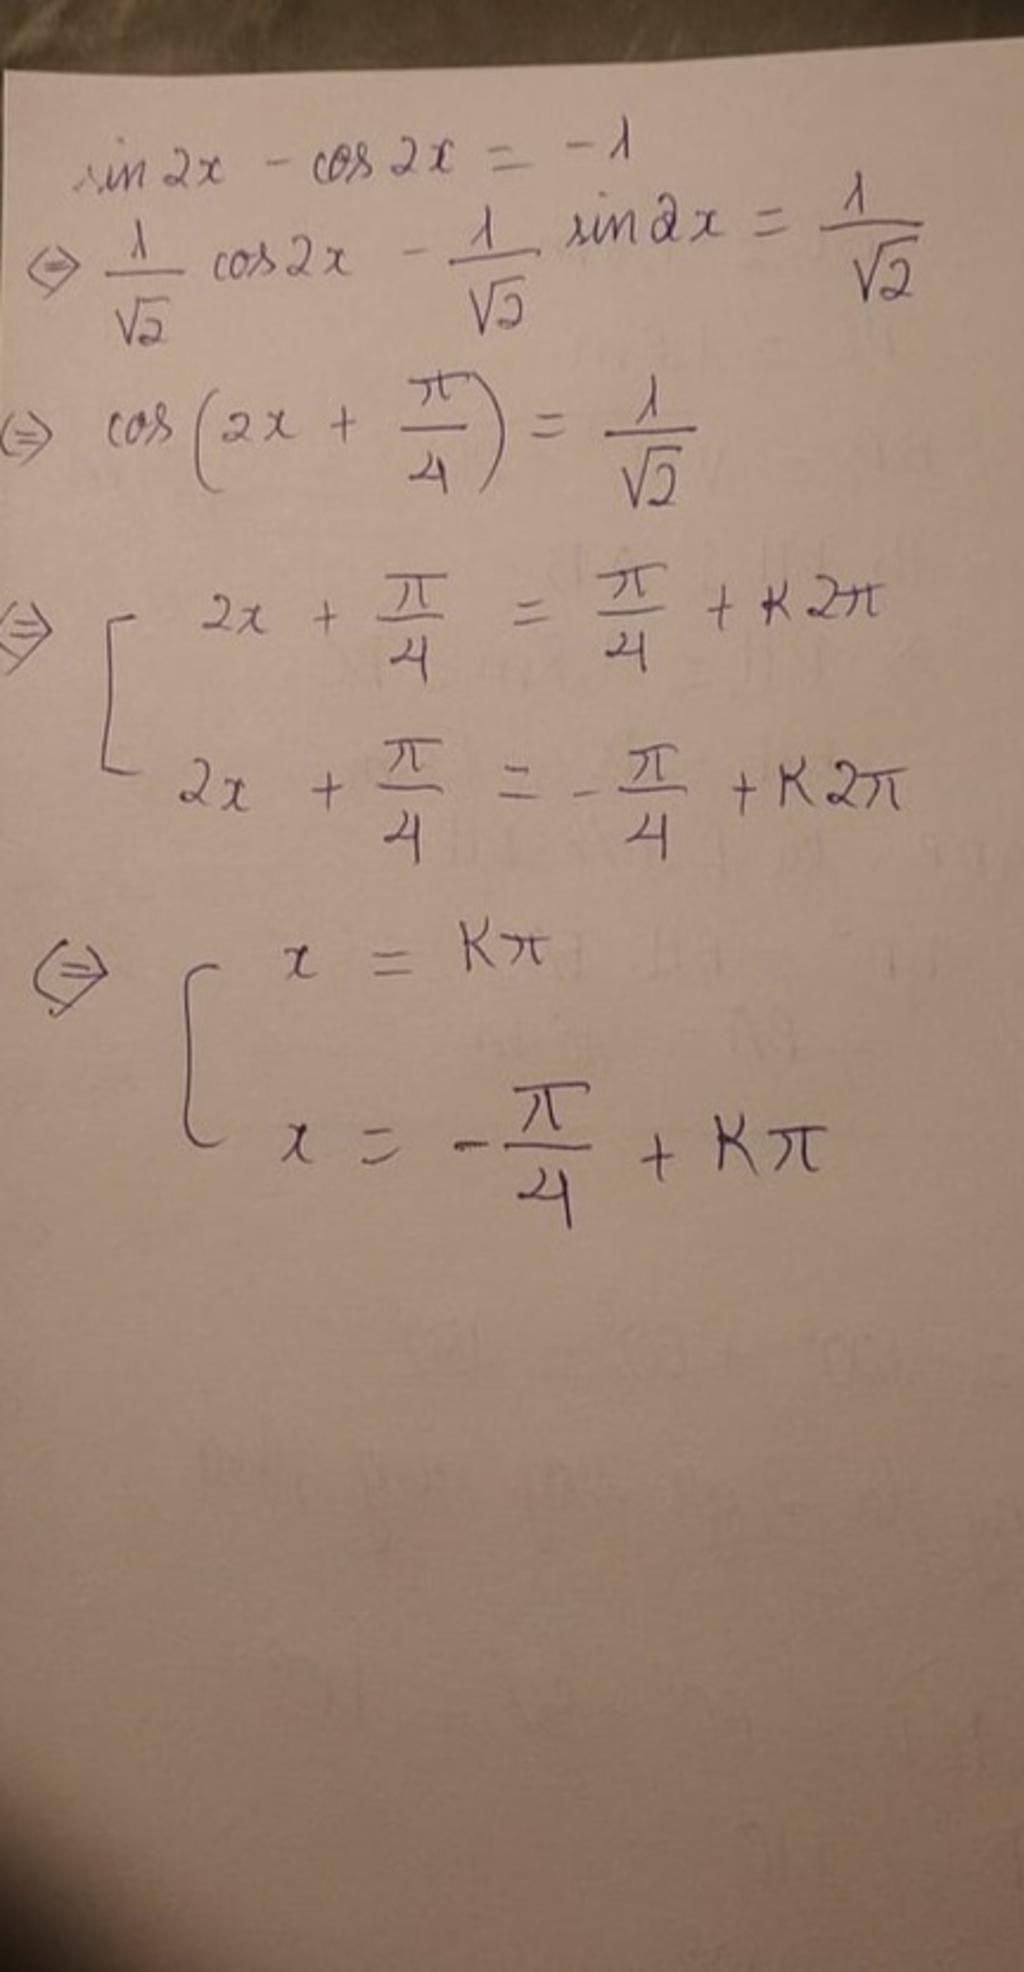 sin 2x - cos 2x = -1
⇔ 1/√2 cos 2x - 1/√2 sin 2x = 1/√2
⇔ cos(2x + π/4) = 1/√2
⇔ [ 2x + π/4 = π/4 + K2π
2x + π/4 = -π/4 + K2π
⇔ [ x = Kπ
x = -π/4 + Kπ